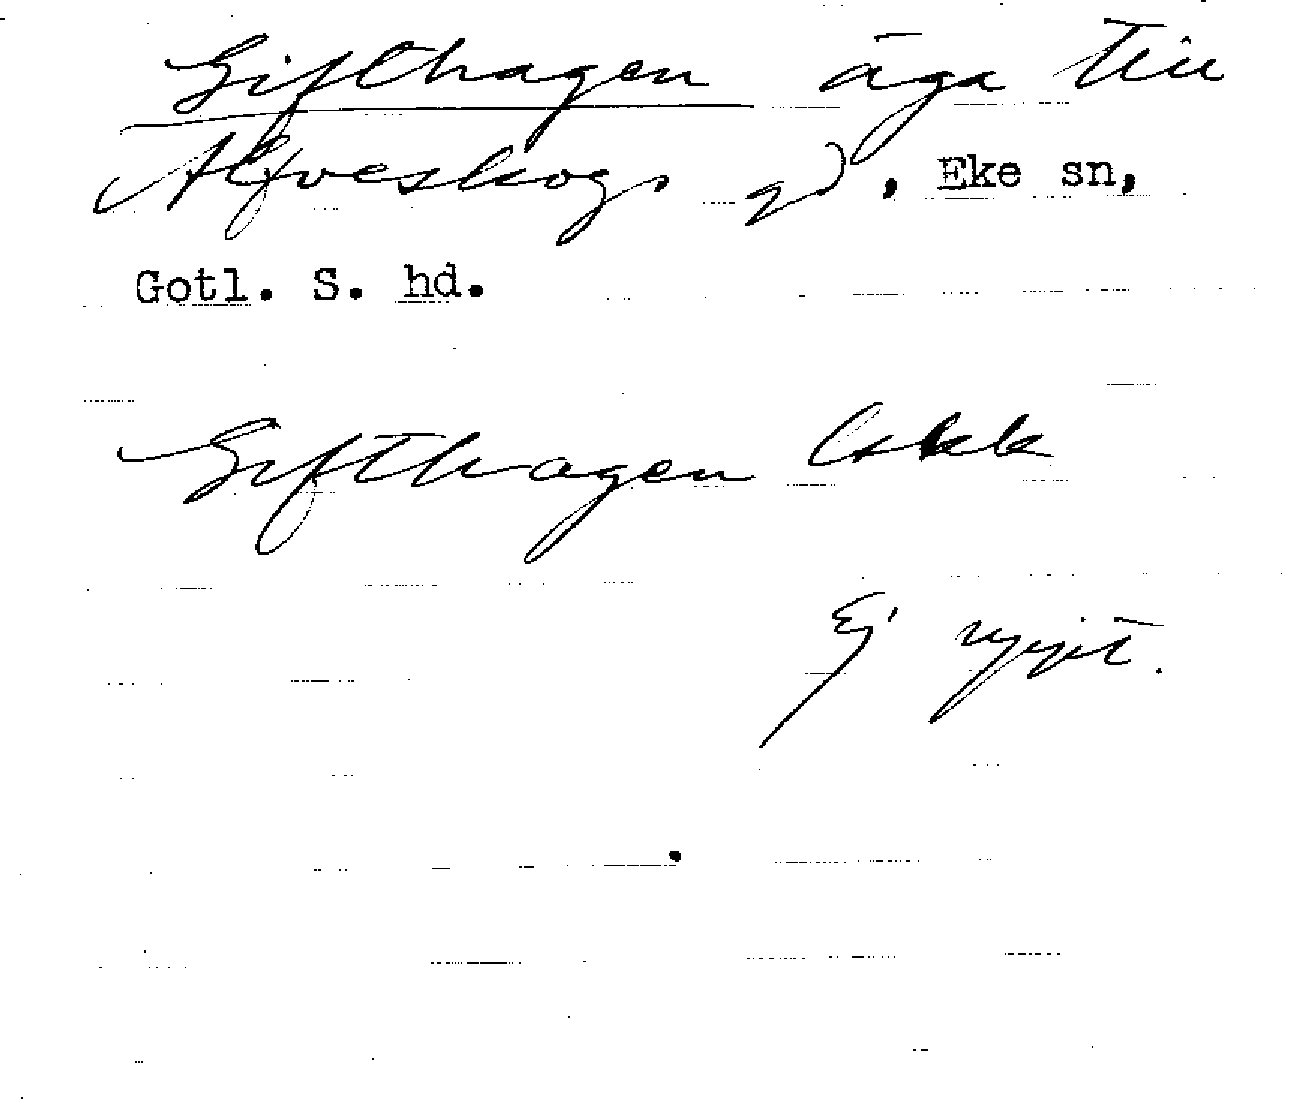 Gifthagen äga till
Alfveskogs gd, Eke sn,
Gotl. S. hd.
Gifthagen Eskk
Ej nyjt.